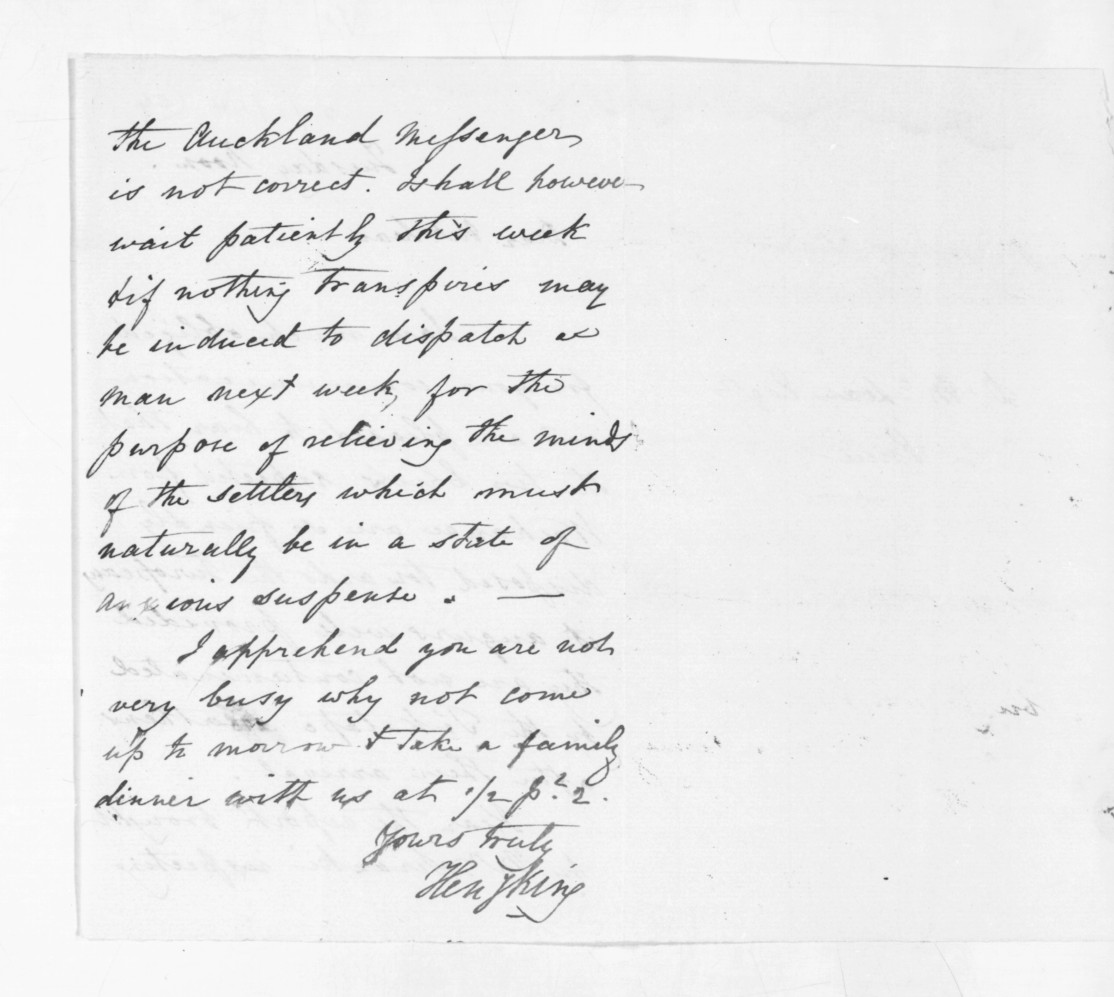 the Auckland Messenger
is not correct. I shall however
wait patiently this week
& if nothing transpires may
be induced to dispatch a
man next week, for the
purpose of relieving the minds
of the settlers which must
naturally be in a state of
anxious suspense . —
I apprehend you are not
very busy why not come
up to morrow & take a family
dinner with us at 1/2 pt 2.
Yours truly
Heny King